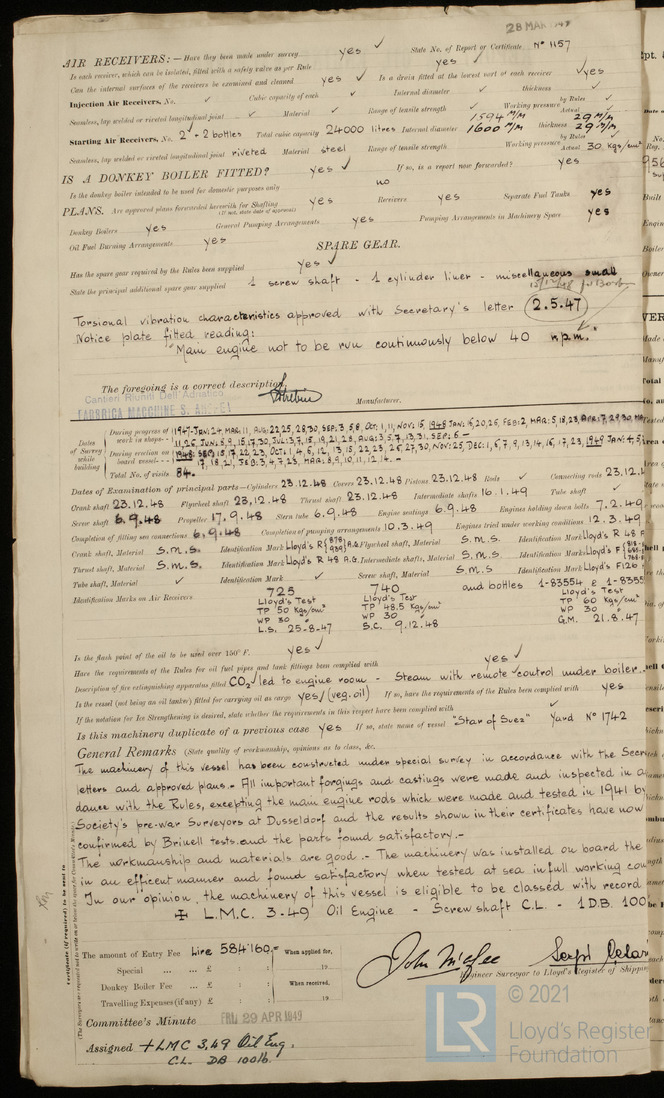 28 MAR
AIR RECEIVERS:— Have they been made under survey yes ✓ State No. of Report or Certificate Nº 1157
Is each receiver, which can be isolated, fitted with a safety valve as per Rule yes ✓
Can the internal surfaces of the receivers be examined and cleaned yes ✓ Is a drain fitted at the lowest part of each receiver ✓ yes
Injection Air Receivers, No. ✓ Cubic capacity of each ✓ Internal diameter ✓ thickness ✓
Seamless, lap welded or riveted longitudinal joint ✓ Material ✓ Range of tensile strength ✓ Working pressure by Rules ✓ Actual
Starting Air Receivers, No. 2 + 2 bottles Total cubic capacity 24000 litres Internal diameter 1594 m/m 1600 m/m thickness 29 m/m 29 m/m
Seamless, lap welded or riveted longitudinal joint riveted Material steel Range of tensile strength Working pressure by Rules ✓ Actual 30 Kgs/cm²
IS A DONKEY BOILER FITTED? yes ✓ If so, is a report now forwarded? yes
Is the donkey boiler intended to be used for domestic purposes only no
PLANS. Are approved plans forwarded herewith for Shafting yes Receivers yes Separate Fuel Tanks yes
(If not, state date of approval)
Donkey Boilers yes General Pumping Arrangements yes Pumping Arrangements in Machinery Space yes
Oil Fuel Burning Arrangements yes
SPARE GEAR.
Has the spare gear required by the Rules been supplied yes ✓
State the principal additional spare gear supplied 1 screw shaft - 1 cylinder liner - miscellaneous small
Torsional vibration characteristics approved with Secretary's letter 2.5.47
Notice plate fitted reading:
"Main engine not to be run continuously below 40 r.p.m."
The foregoing is a correct description,
Cantieri Riuniti Dell'Adriatico
FABBRICA MACCHINE S. ANDREA
Manufacturer.
Dates of Survey while building
During progress of work in shops - - 1947-JAN:24, MAR:11, AUG:22,25,28,30, SEP:3,5,8, OCT:1,11, NOV:15, 1948 JAN:16,20,26, FEB:2, MAR:5,18,23, APR:7,29,30,
11,26, JUN:8,9,15,17,30, JUL:3,7,15,19,21,28, AUG:3,5,7,13,31, SEP:6.-
During erection on board vessel - - - 1948: SEP:15,17,22,23, OCT:1,4,6,12,13,15,22,23,25,27,30, NOV:25, DEC:1,6,7,9,13,14,16,17,23, 1949 JAN:4,5,
17,18,21, FEB:3,4,7,23, MAR:8,9,10,11,12,14.-
Total No. of visits 84.
Dates of Examination of principal parts—Cylinders 23.12.48 Covers 23.12.48 Pistons 23.12.48 Rods ✓ Connecting rods 23.12.4
Crank shaft 23.12.48 Flywheel shaft 23.12.48 Thrust shaft 23.12.48 Intermediate shafts 16.1.49 Tube shaft ✓
Screw shaft 6.9.48 Propeller 17.9.48 Stern tube 6.9.48 Engine seatings 6.9.48 Engines holding down bolts 7.2.49
Completion of fitting sea connections 6.9.48 Completion of pumping arrangements 10.3.49 Engines tried under working conditions 12.3.49
Crank shaft, Material S.M.S. Identification Mark Lloyd's R {878 / 939} A.G. Flywheel shaft, Material S.M.S. Identification Mark Lloyd's R 48
Thrust shaft, Material S.M.S. Identification Mark Lloyd's R 48 A.G. Intermediate shafts, Material S.M.S. Identification Marks Lloyd's F
Tube shaft, Material ✓ Identification Mark ✓ Screw shaft, Material S.M.S Identification Mark Lloyd's F 126
Identification Marks on Air Receivers 725 740 and bottles 1-83554 & 1-8355
Lloyd's Test Lloyd's Test Lloyd's Test
TP 50 Kgs/cm² TP 48.5 Kgs/cm² TP 60 Kgs/cm²
WP 30 " WP 30 WP 30 "
L.S. 25-8-47 S.C. 9.12.48 G.M. 21.8.47
Is the flash point of the oil to be used over 150° F. yes ✓
Have the requirements of the Rules for oil fuel pipes and tank fittings been complied with yes ✓
Description of fire extinguishing apparatus fitted CO₂ led to engine room - Steam with remote control under boiler.
Is the vessel (not being an oil tanker) fitted for carrying oil as cargo yes (veg. oil) If so, have the requirements of the Rules been complied with yes
If the notation for Ice Strengthening is desired, state whether the requirements in this respect have been complied with ✓
Is this machinery duplicate of a previous case yes If so, state name of vessel "Star of Suez" Yard Nº 1742
General Remarks (State quality of workmanship, opinions as to class, &c.
The machinery of this vessel has been constructed under special survey in accordance with the Secre
letters and approved plans.- All important forgings and castings were made and inspected in a
dance with the Rules, excepting the main engine rods which were made and tested in 1941 by
Society's pre-war Surveyors at Dusseldorf and the results shown in their certificates have now
confirmed by Brinell tests and the parts found satisfactory.-
The workmanship and materials are good.- The machinery was installed on board the
in an efficent manner and found satisfactory when tested at sea in full working con
In our opinion, the machinery of this vessel is eligible to be classed with record
✠ L.M.C. 3.49 Oil Engine - Screwshaft C.L. - 1 D.B. 100
Certificate (if required) to be sent to
(The Surveyors are requested not to write on or below the space for Committee's Minute.)
The amount of Entry Fee Lire 584160.= When applied for,
Special ... ... £ : : 19
Donkey Boiler Fee ... £ : : When received,
Travelling Expenses (if any) £ : : 19
John McAfee
Engineer Surveyor to Lloyd's Register of Shipping
Committee's Minute FRI. 29 APR 1949
Assigned + LMC 3.49 Oil Eng.
C.L. DB 100lb.
© 2021
LR
Lloyd's Register
Foundation